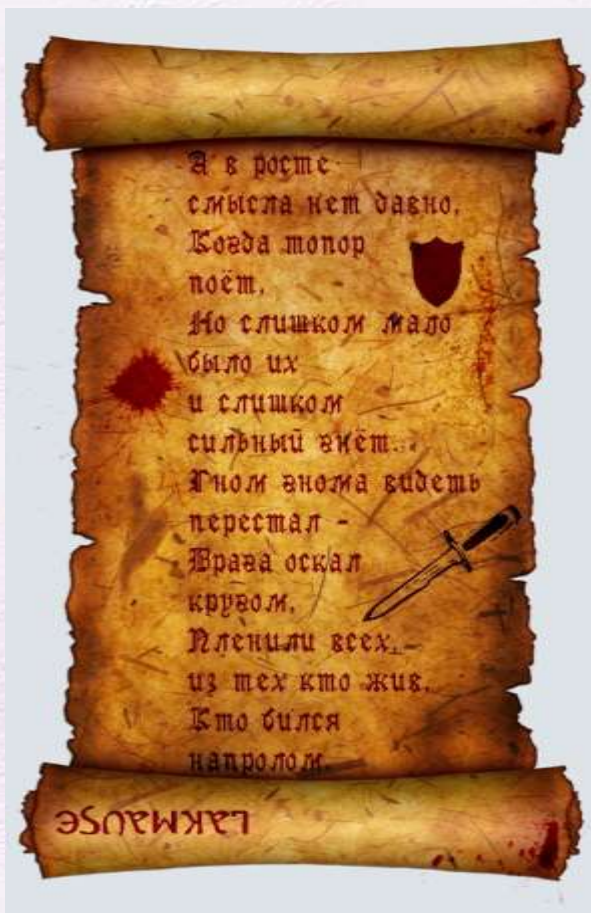 А в росте
смысла нет давно,
Когда топор
поёт,
Но слишком мало
было их
и слишком
сильный гнёт...
Гном гнома видеть
перестал -
Врага оскал
кругом,
Пленили всех -
из тех кто жив,
Кто бился
напролом.
LAKMAUSE